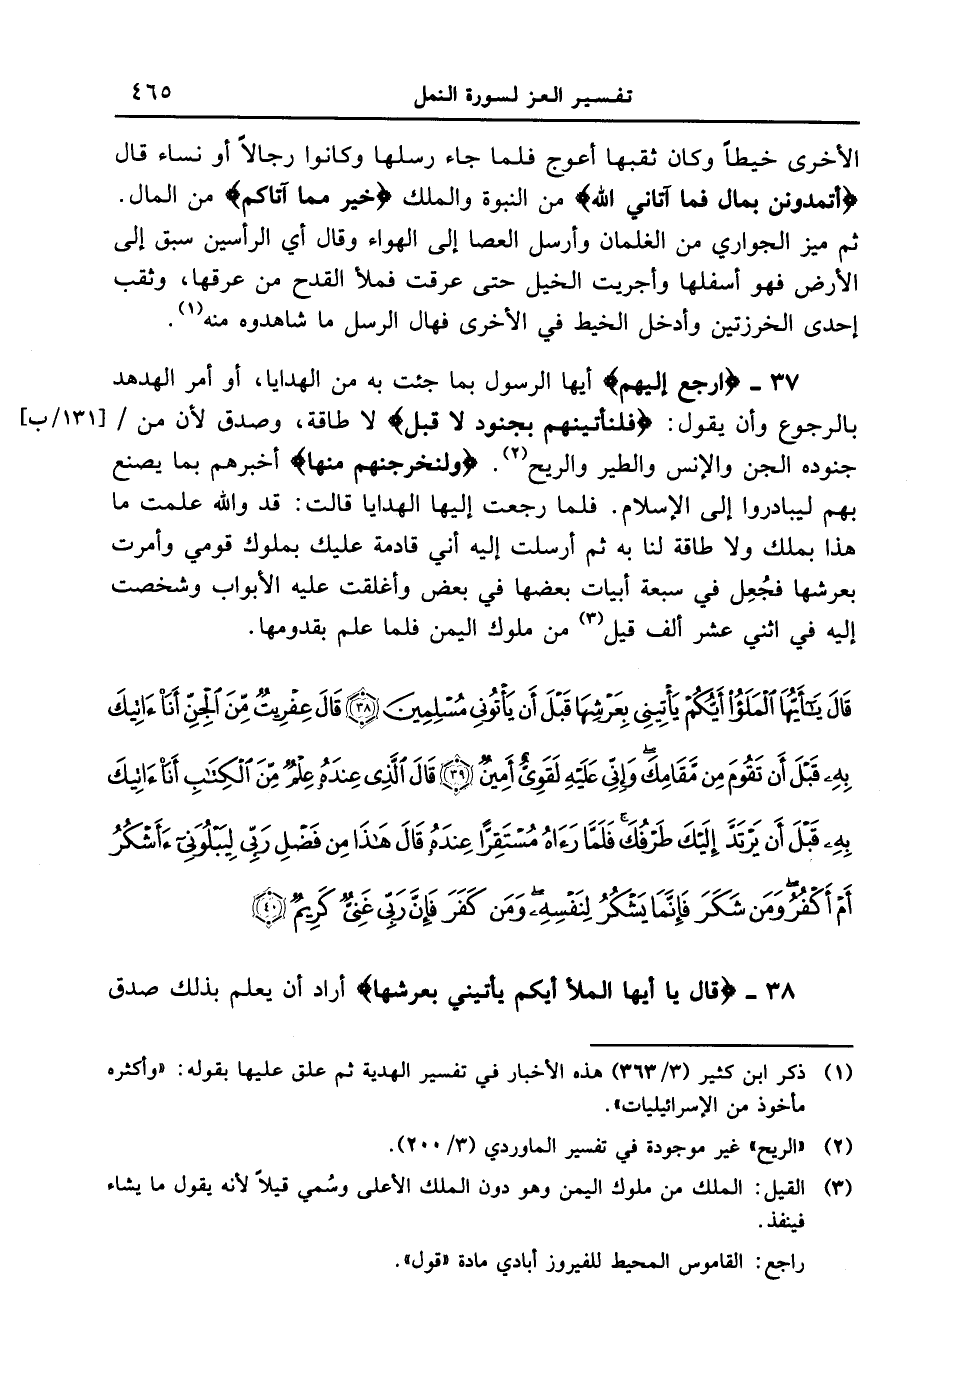 تفسير العز لسورة النمل ٤٦٥
الأخرى خيطاً وكان ثقبها أعوج فلما جاء رسلها وكانوا رجالاً أو نساء قال
﴿أتمدونن بمال فما آتاني الله﴾ من النبوة والملك ﴿خير مما آتاكم﴾ من المال.
ثم ميز الجواري من الغلمان وأرسل العصا إلى الهواء وقال أي الرأسين سبق إلى
الأرض فهو أسفلها وأجريت الخيل حتى عرقت فملأ القدح من عرقها، وثقب
إحدى الخرزتين وأدخل الخيط في الأخرى فهال الرسل ما شاهدوه منه(١).
٣٧ ـ ﴿ارجع إليهم﴾ أيها الرسول بما جئت به من الهدايا، أو أمر الهدهد
بالرجوع وأن يقول: ﴿فلنأتينهم بجنود لا قبل﴾ لا طاقة، وصدق لأن من / [١٣١/ب]
جنوده الجن والإنس والطير والريح(٢). ﴿ولنخرجنهم منها﴾ أخبرهم بما يصنع
بهم ليبادروا إلى الإسلام. فلما رجعت إليها الهدايا قالت: قد والله علمت ما
هذا بملك ولا طاقة لنا به ثم أرسلت إليه أني قادمة عليك بملوك قومي وأمرت
بعرشها فجُعِل في سبعة أبيات بعضها في بعض وأغلقت عليه الأبواب وشخصت
إليه في اثني عشر ألف قيل(٣) من ملوك اليمن فلما علم بقدومها.
قَالَ يَٰٓأَيُّهَا ٱلْمَلَؤُا۟ أَيُّكُمْ يَأْتِينِى بِعَرْشِهَا قَبْلَ أَن يَأْتُونِى مُسْلِمِينَ ﴿٣٨﴾ قَالَ عِفْرِيتٌ مِّنَ ٱلْجِنِّ أَنَا۠ ءَاتِيكَ
بِهِۦ قَبْلَ أَن تَقُومَ مِن مَّقَامِكَ ۖ وَإِنِّى عَلَيْهِ لَقَوِىٌّ أَمِينٌ ﴿٣٩﴾ قَالَ ٱلَّذِى عِندَهُۥ عِلْمٌ مِّنَ ٱلْكِتَٰبِ أَنَا۠ ءَاتِيكَ
بِهِۦ قَبْلَ أَن يَرْتَدَّ إِلَيْكَ طَرْفُكَ ۚ فَلَمَّا رَءَاهُ مُسْتَقِرًّا عِندَهُۥ قَالَ هَٰذَا مِن فَضْلِ رَبِّى لِيَبْلُوَنِىٓ ءَأَشْكُرُ
أَمْ أَكْفُرُ ۖ وَمَن شَكَرَ فَإِنَّمَا يَشْكُرُ لِنَفْسِهِۦ ۖ وَمَن كَفَرَ فَإِنَّ رَبِّى غَنِىٌّ كَرِيمٌ ﴿٤٠﴾
٣٨ ـ ﴿قال يا أيها الملأ أيكم يأتيني بعرشها﴾ أراد أن يعلم بذلك صدق
(١) ذكر ابن كثير (٣/٣٦٣) هذه الأخبار في تفسير الهدية ثم علق عليها بقوله: «وأكثره
مأخوذ من الإسرائيليات».
(٢) «الريح» غير موجودة في تفسير الماوردي (٣/٢٠٠).
(٣) القيل: الملك من ملوك اليمن وهو دون الملك الأعلى وسُمي قيلاً لأنه يقول ما يشاء
فينفذ.
راجع: القاموس المحيط للفيروز أبادي مادة «قول».